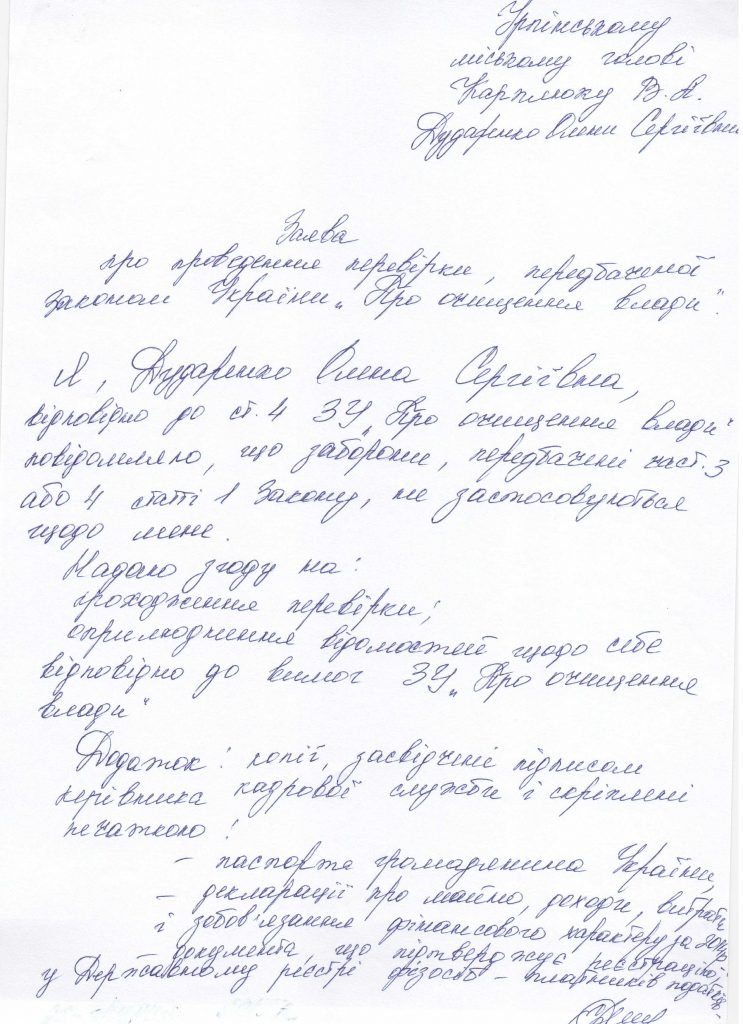 Ірпінському
міському голові
Карплюку В. А.
Дударенко Олени Сергіївни
Заява
про проведення перевірки, передбаченої
Законом України „Про очищення влади".
Я, Дударенко Олена Сергіївна,
відповідно до ст. 4 ЗУ „Про очищення влади"
повідомляю, що заборони, передбачені част. 3
або 4 статті 1 Закону, не застосовуються
щодо мене.
Надаю згоду на:
проходження перевірки;
оприлюднення відомостей щодо себе
відповідно до вимог ЗУ „Про очищення
влади"
Додаток: копії, засвідчені підписом
керівника кадрової служби і скріплені
печаткою:
– паспорта громадянина України,
– декларації про майно, доходи, витрати
і зобов'язання фінансового характеру за
– документа, що підтверджує реєстрацію
у Державному реєстрі фізосіб – платників податків.